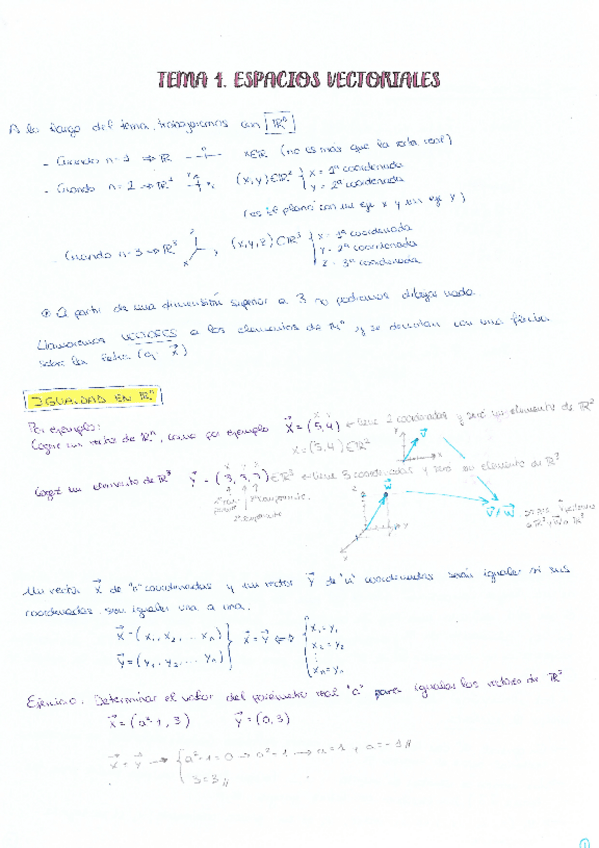 TEMA 1. ESPACIOS VECTORIALES
A lo largo del tema, trabajaremos con ℝⁿ
- Cuando n=1 ⇒ ℝ x∈ℝ (no es más que la recta real)
- Cuando n=2 → ℝ² (x,y)∈ℝ² { x = 1ª coordenada
y = 2ª coordenada
(es el plano con un eje x y un eje y)
Cuando n=3 → ℝ³ , (x,y,z)∈ℝ³ { x = 1ª coordenada
y = 2ª coordenada
z = 3ª coordenada
A partir de una dimensión superior a 3 no podremos dibujar nada.
Llamaremos VECTORES a los elementos de ℝⁿ y se denotan con una flecha
sobre las letras (ej: x⃗)
IGUALDAD EN ℝⁿ
Por ejemplo:
Cogere un vector de ℝⁿ, como por ejemplo x⃗ = (5,4) ← tiene 2 coordenadas y será un elemento de ℝ²
x = (5,4) ∈ ℝ²
v⃗
Coger un elemento de ℝ³ y⃗ = (3,3,7) ∈ ℝ³ ← tiene 3 coordenadas y será un elemento de ℝ³
w⃗
3ª componente.
2ª componente
v⃗ / w⃗
Un vector x⃗ de "n" coordenadas y un vector y⃗ de "n" coordenadas serán iguales si sus
coordenadas son iguales una a una.
x⃗ = (x₁, x₂, ... xₙ) } x⃗ = y⃗ ⇔ { x₁ = y₁
y⃗ = (y₁, y₂, ... yₙ) x₂ = y₂
⋮
xₙ = yₙ
Ejercicio. Determinar el valor del parámetro real "a" para igualar los vectores de ℝ²
x⃗ = (a²-1, 3) y⃗ = (0,3)
x⃗ = y⃗ → { a²-1=0 → a²=1 → a=1, a=-1//
3=3//
1